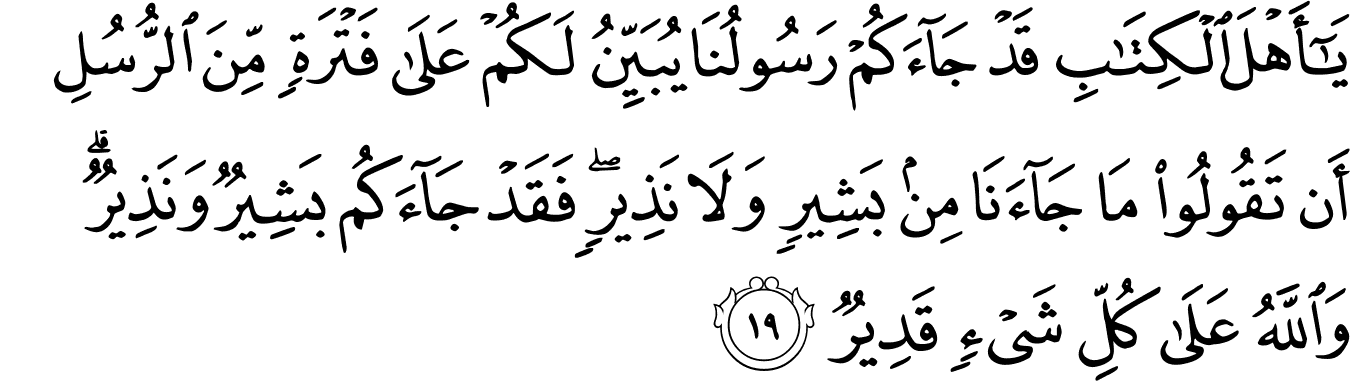 يَـٰٓأَهۡلَ ٱلۡكِتَـٰبِ قَدۡ جَآءَكُمۡ رَسُولُنَا يُبَيِّنُ لَكُمۡ عَلَىٰ فَتۡرَةٍ مِّنَ ٱلرُّسُلِ
أَن تَقُولُواْ مَا جَآءَنَا مِنۢ بَشِيرٍ وَلَا نَذِيرٍۖ فَقَدۡ جَآءَكُم بَشِيرٌ وَنَذِيرٌۗ
وَٱللَّهُ عَلَىٰ كُلِّ شَىۡءٍ قَدِيرٌ ١٩